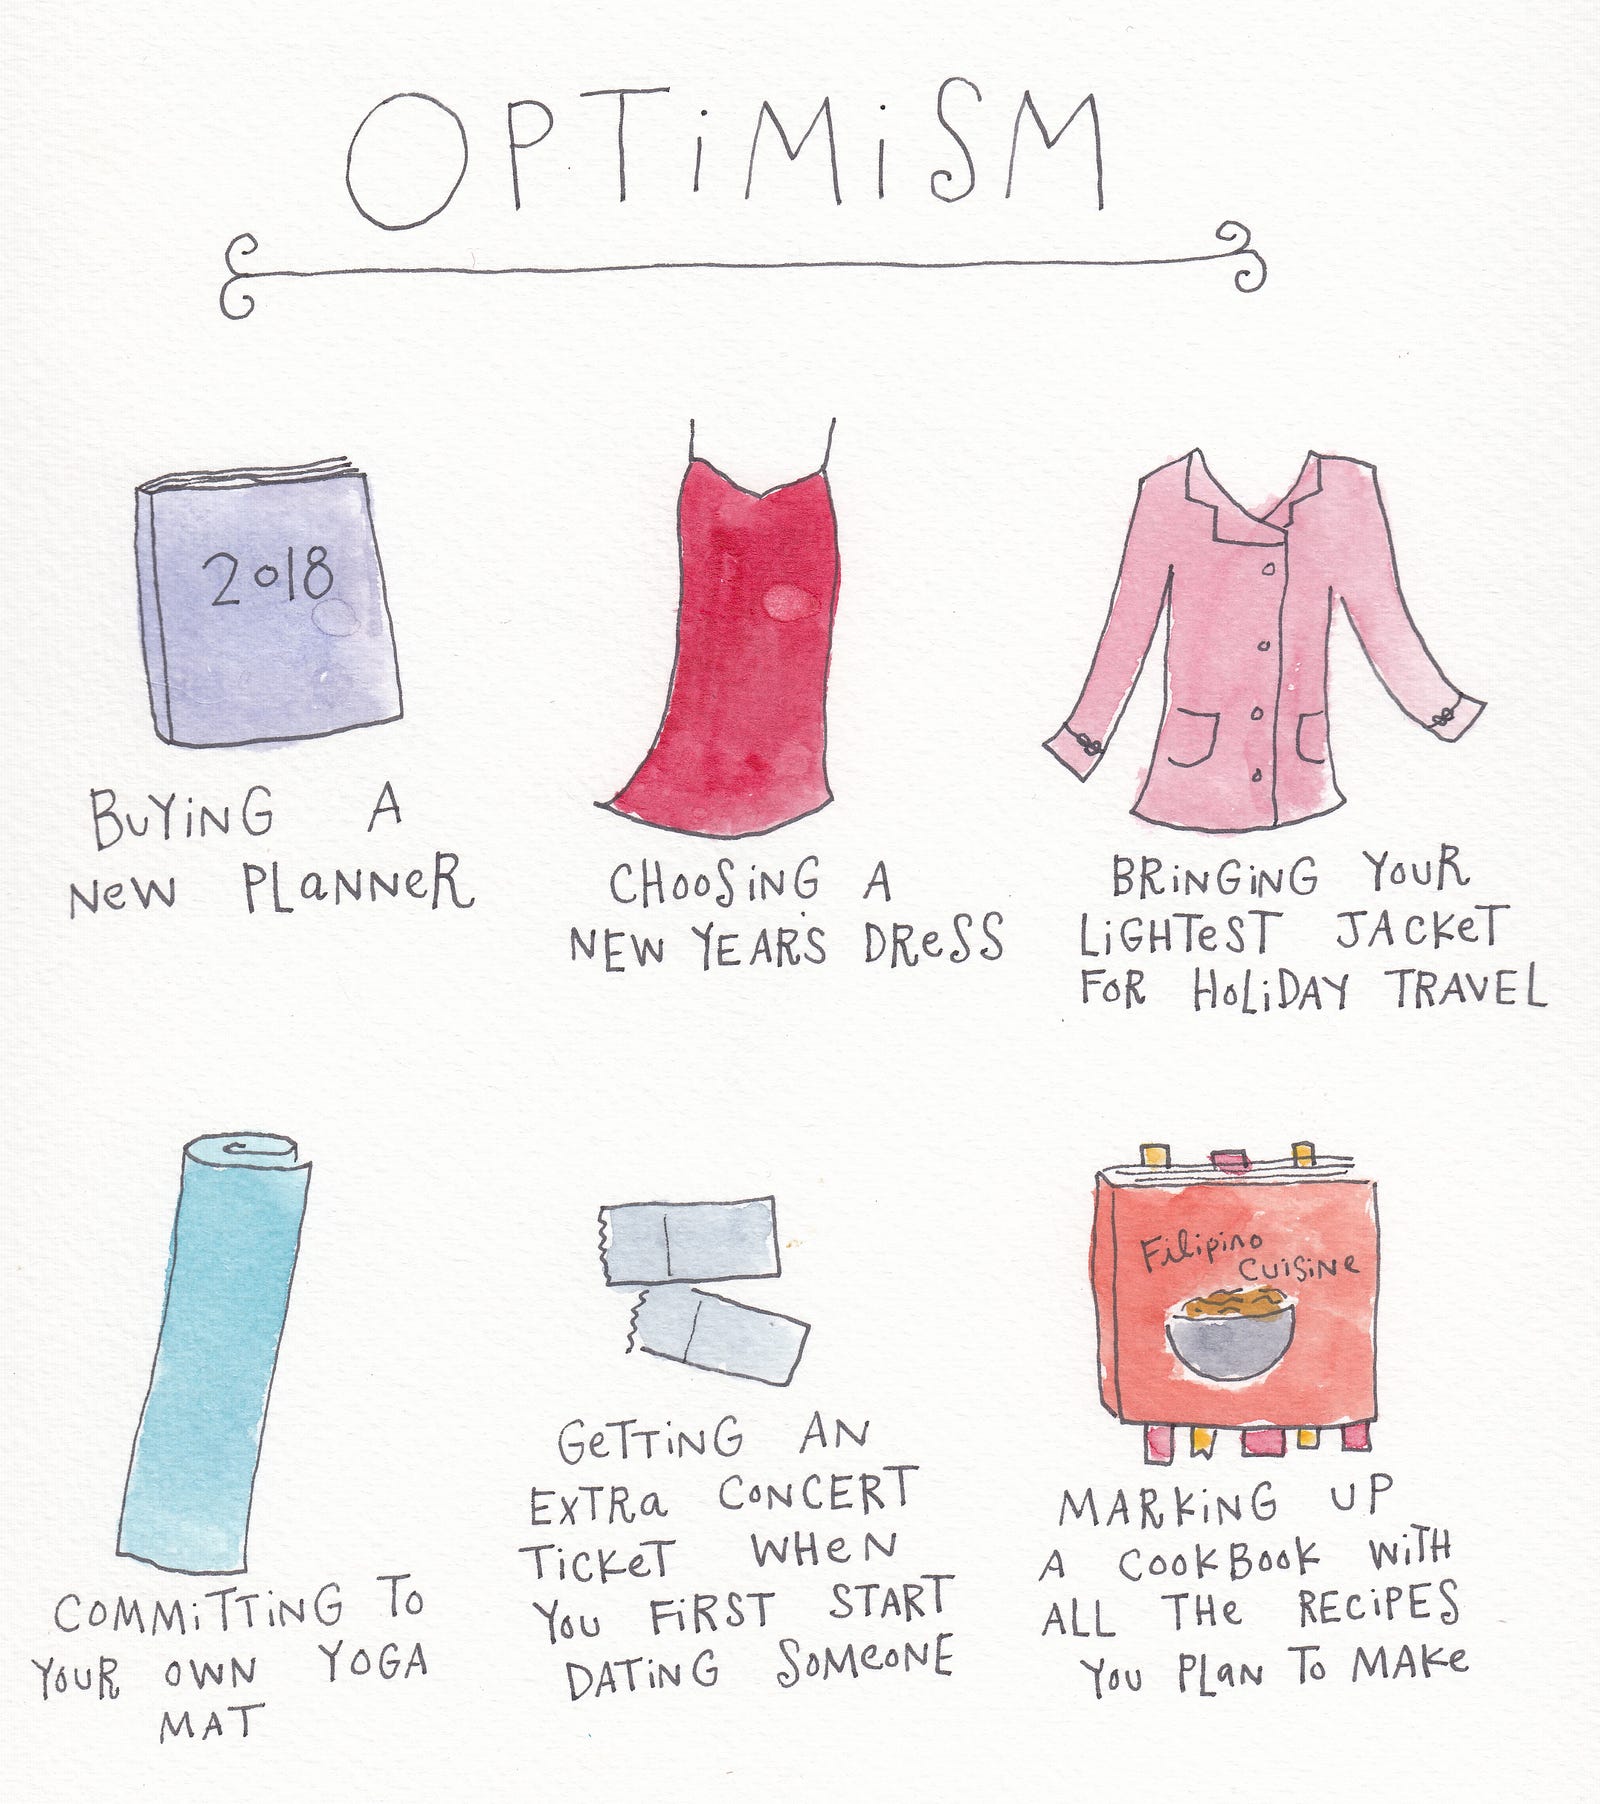 OPTiMiSM
2018
BuYiNG A
NeW PLaNNeR
CHooSiNG A
NEW YEAR'S DReSS
BRiNGiNG YOUR
LiGHTeST JACKeT
FoR HoLiDAY TRAVEL
COMMiTTiNG To
YOUR OWN YOGA
MAT
GeTTiNG AN
ExTRa CoNCERT
TicKeT WHeN
You FiRST START
DATiNG SoMeoNE
Filipino
CuiSiNe
MARKiNG UP
A COOKBooK WiTH
ALL THe RECiPES
You PLaN To MAKe